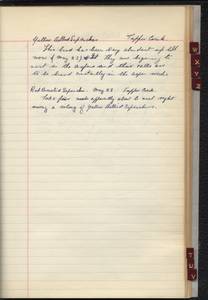 Yellow Bellied Sapsucker. Tupper Creek
This bird has been very abundant up till
now (May 23) They are beginning to
nest in the aspens and their calls are
to be heard constantly in the aspen woods.
Red Breasted Sapsucker. May 23. Tupper Creek.
nest right
among a colony of Yellow Bellied Sapsuckers.
W
X
Y
Z
T
U
V